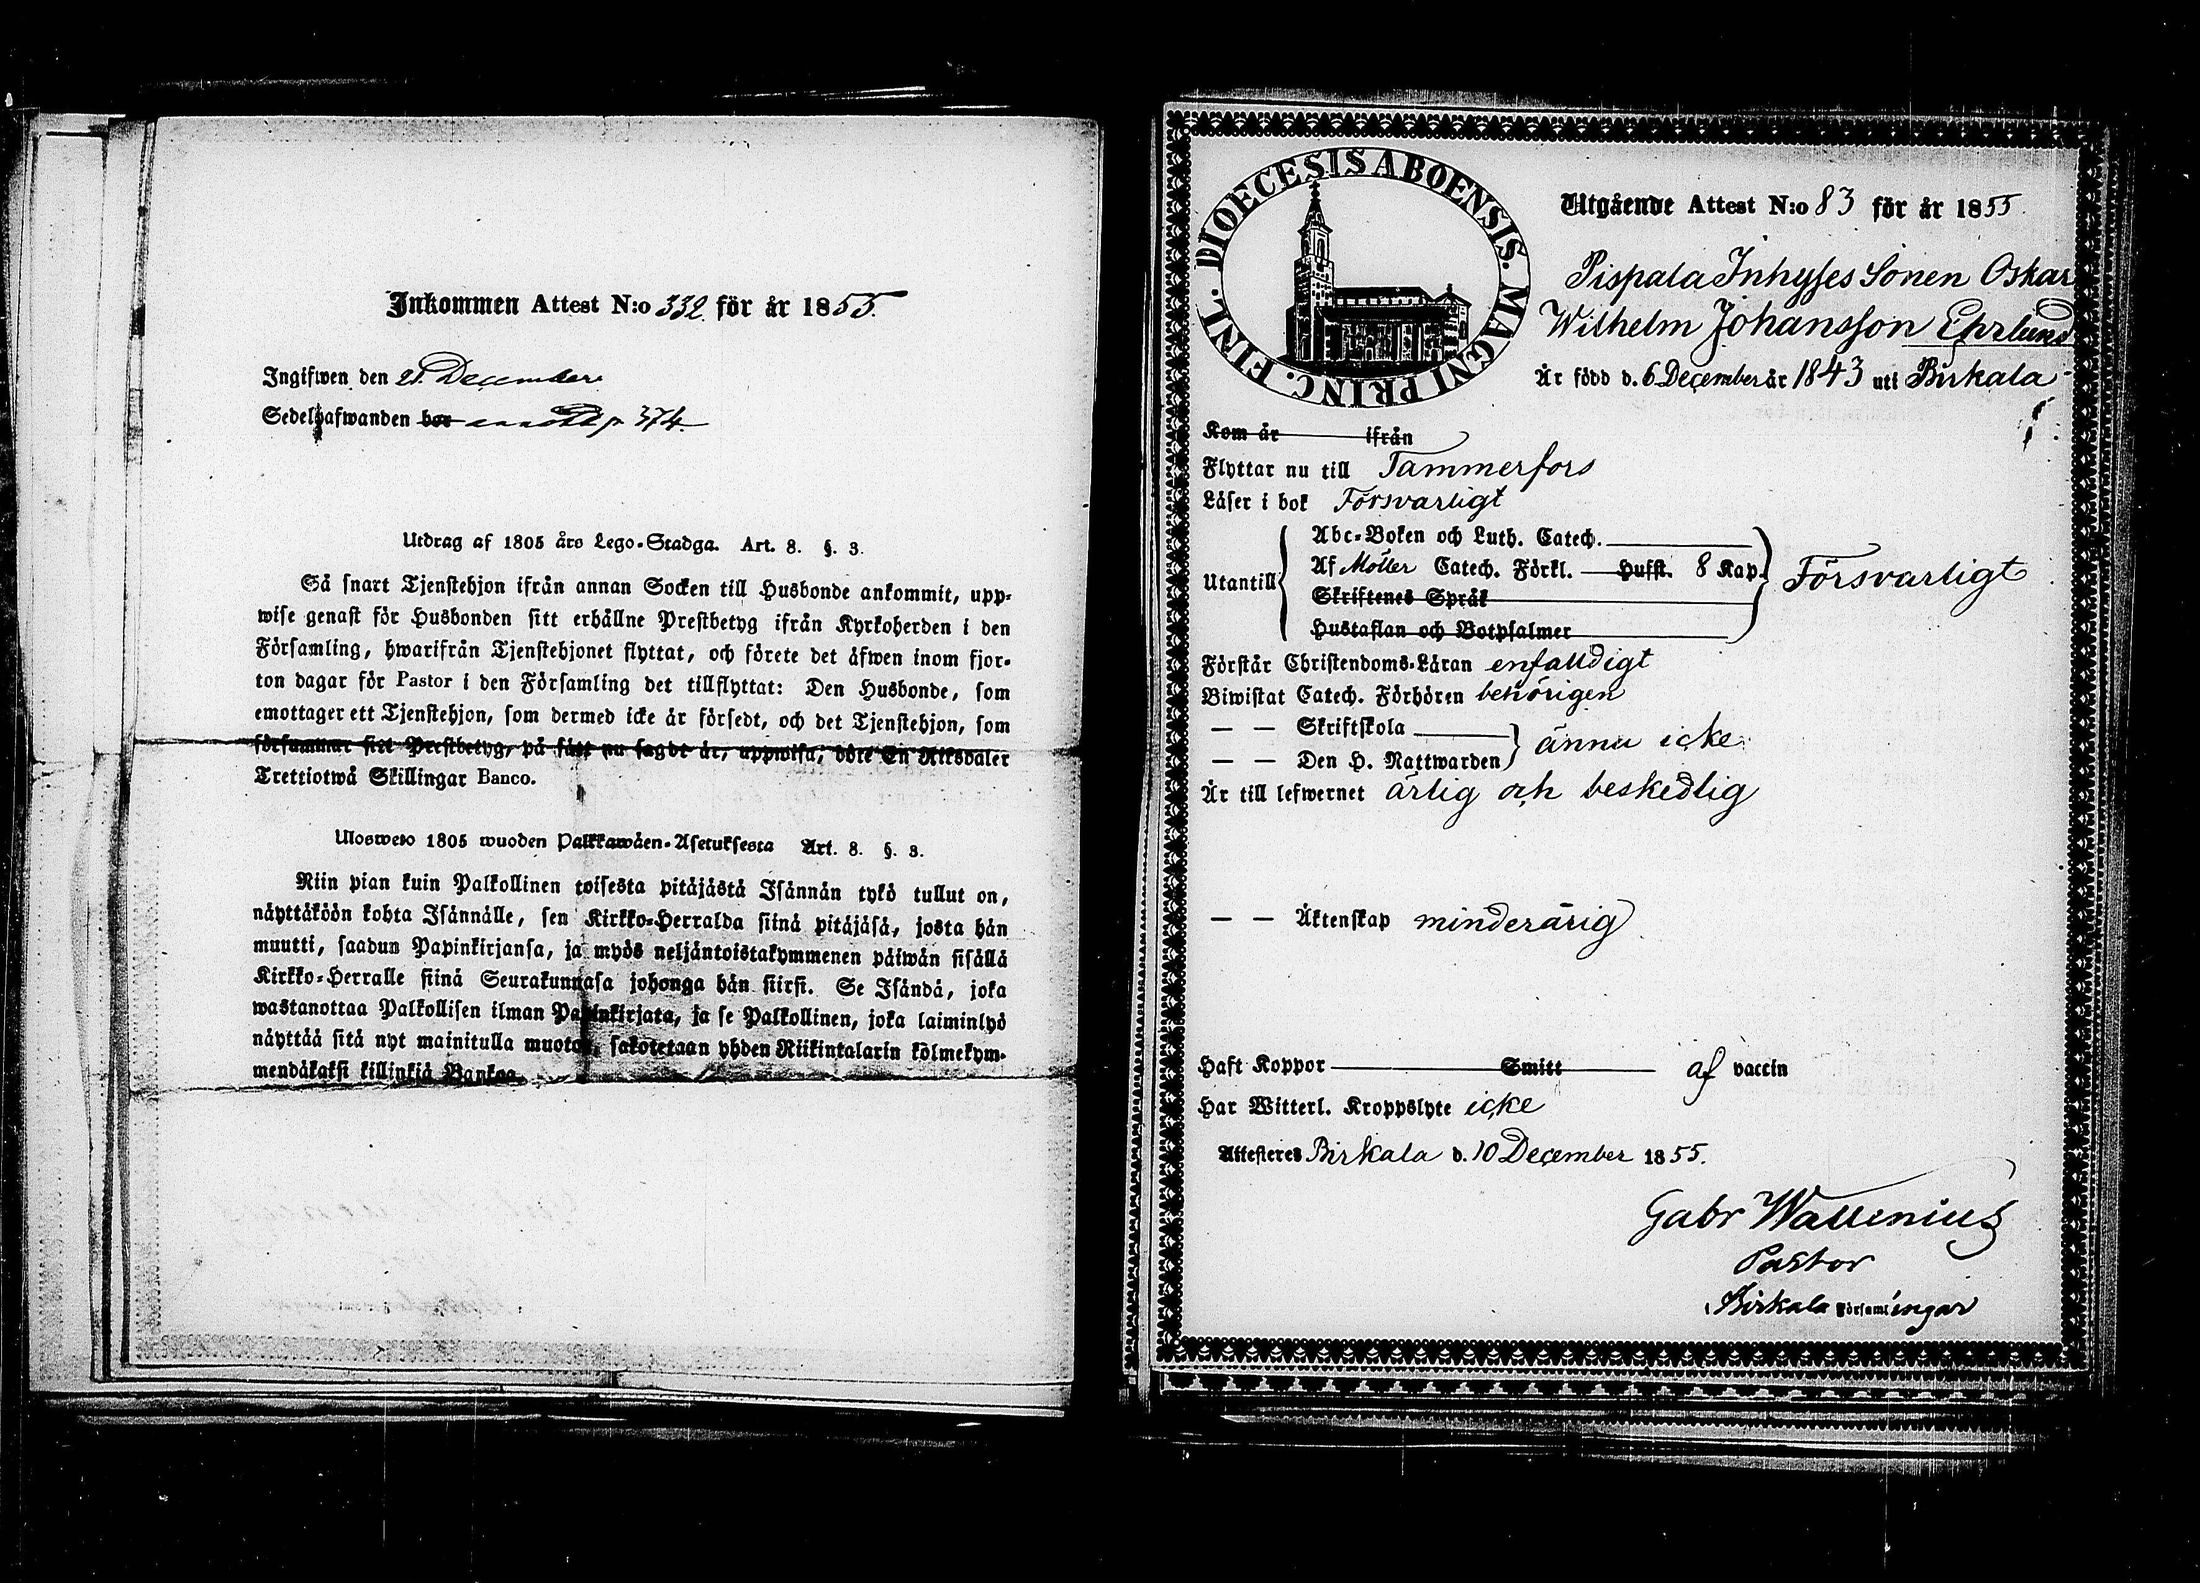 Inkommen Attest N:o 332 för år 1855.
Ingifwen den 21 December
Sedelhafwanden bor p 374
Utdrag af 1805 års Lego-Stadga. Art. 8. §. 3.
Så snart Tjenstehjon ifrån annan Socken till Husbonde ankommit, upp-
wise genast för Husbonden sitt erhållne Prestbetyg ifrån Kyrkoherden i den
Församling, hwarifrån Tjenstehjonet flyttat, och förete det äfwen inom fjor-
ton dagar för Pastor i den Församling det tillflyttat: Den Husbonde, som
emottager ett Tjenstehjon, som dermed icke är försedt, och det Tjenstehjon, som
försummar sitt Prestbetyg, på sätt nu sagdt är, uppwisa, böte En Riksdaler
Trettiotwå Skillingar Banco.
Ulosweto 1805 wuoden Palkkawäen-Asetuksesta Art. 8. §. 3.
Niin pian kuin Palkollinen toisesta pitäjästä Isännän tykö tullut on,
näyttäköön kohta Isännälle, sen Kirkko-Herralda siinä pitäjäsä, josta hän
muutti, saadun Papinkirjansa, ja myös neljäntoistakymmenen päiwän sisällä
Kirkko-Herralle siinä Seurakunnasa johonga hän siirsi. Se Isändä, joka
wastanottaa Palkollisen ilman Papinkirjata, ja se Palkollinen, joka laiminlyö
näyttää sitä nyt mainitulla muotoa, sakotetaan yhden Riikintalarin kolmekym-
mendäkaksi killinkiä Bankoa.
DIOECESIS ABOENSIS. MAGNI PRINC. FINL.
Utgående Attest N:o 83 för år 1855.
Pispala Inhyses Sonen Oskar
Wilhelm Johansson Ehrlund
Är född d. 6 December år 1843 uti Birkala
Kom år ifrån
Flyttar nu till Tammerfors
Läser i bok Försvarligt
Utantill
Abc-Boken och Luth. Catech.
Af Möller Catech. Förkl. Hufst. 8 Kap. Försvarligt
Skriftenes Språk
Hustaflan och Botpsalmer
Förstår Christendoms-Läran enfaldigt
Biwistat Catech. Förhören behörigen
— — Skriftskola
ännu icke
— — Den H. Nattwarden
Är till lefwernet ärlig och beskedlig
— — Äktenskap minderårig
Haft Koppor Smitt af vaccin
Har Witterl. Kroppslyte icke
Attesteres Birkala d. 10 December 1855.
Gabr Wallenius
Pastor
i Birkala Församlingar